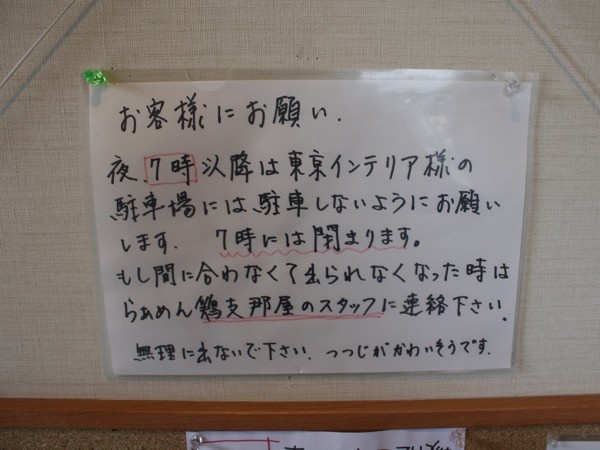 お客様にお願い.
夜、7時以降は東京インテリア様の
駐車場には駐車しないようにお願い
します. 7時には閉まります。
もし間に合わなくて出られなくなった時は
らぁめん鶏支那屋のスタッフに連絡下さい。
無理に出ないで下さい. つつじがかわいそうです.